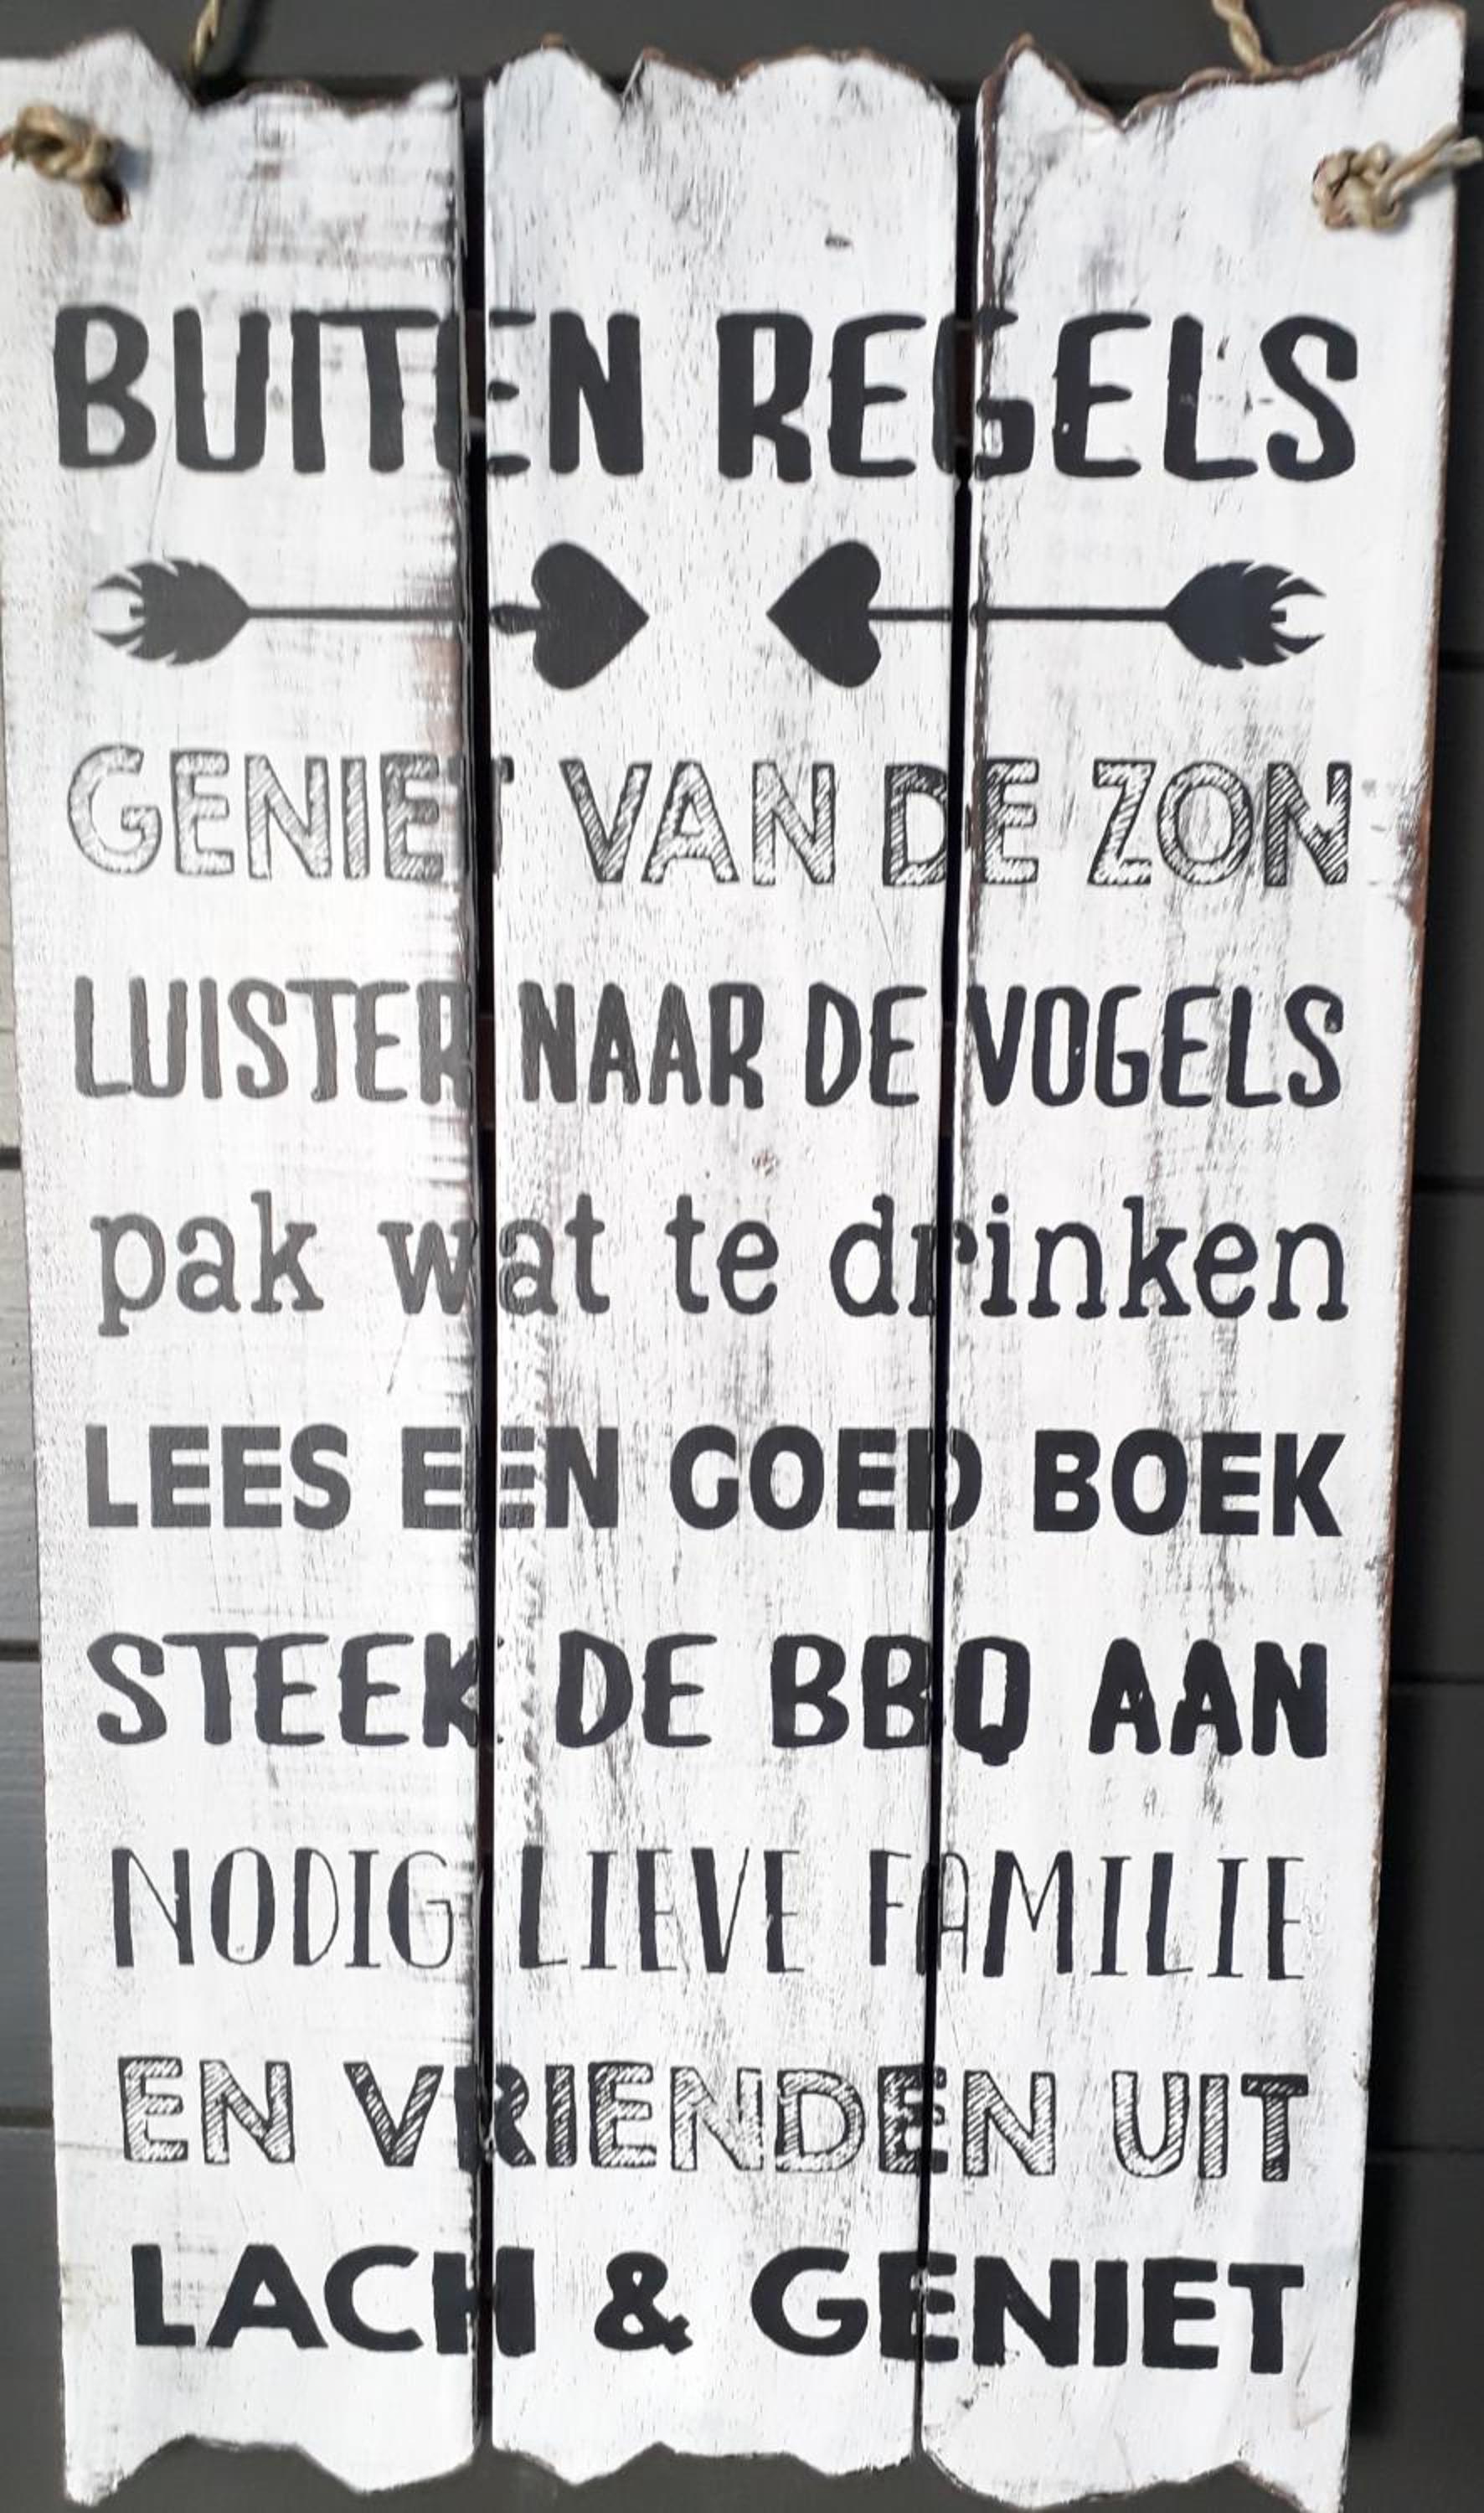 BUITEN REGELS
GENIET VAN DE ZON
LUISTER NAAR DE VOGELS
pak wat te drinken
LEES EEN GOED BOEK
STEEK DE BBQ AAN
NODIG LIEVE FAMILIE
EN VRIENDEN UIT
LACH & GENIET